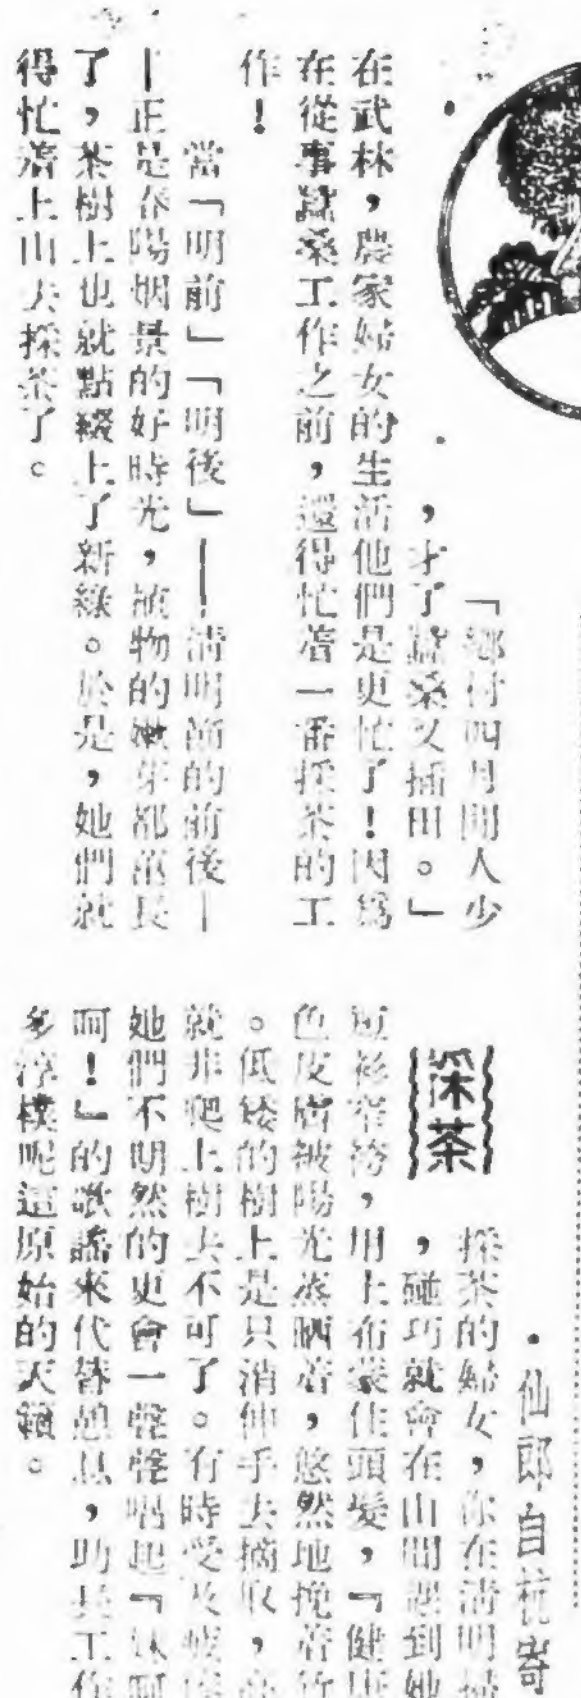 「鄉村四月閒人少
，才了蠶桑又插田。」
在武林，農家婦女的生活他們是更忙了！因爲
在從事蠶桑工作之前，還得忙着一番採茶的工
作！
當「明前」「明後」——清明節的前後—
—正是春陽烟景的好時光，植物的嫩芽都茁長
了，茶樹上也就點綴上了新綠。於是，她們就
得忙着上山去採茶了。
採茶
•仙郎自杭寄
採茶的婦女，你在清明
，碰巧就會在山間 到她
衫窄袴，用上布蒙住頭髮，『健康
色皮膚被陽光蒸晒着，悠然地挽着竹
。低矮的樹上是只消伸手去摘取，
就非爬上樹去不可了。有時受
她們不明然的更會一聲聲唱起『妹呵
呵！』的歌謠來代替憩息，助其工作
多淳樸呢這原始的天籟。